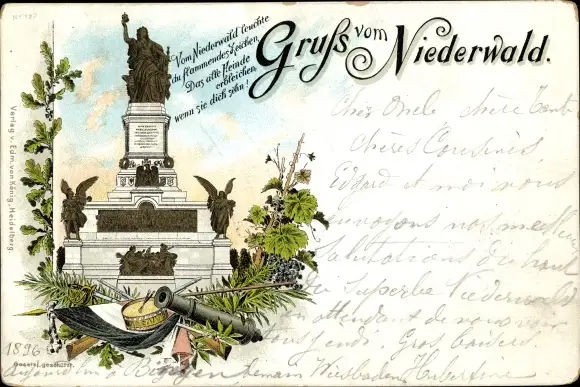 Gruß vom Niederwald.
Vom Niederwald leuchte
du flammendes Zeichen,
Das alle Feinde
erbleichen
wenn sie dich sehn!
Verlag v. Edm. von König, Heidelberg
Cher Oncle chère Tante
chères Cousines.
Edgard et moi nous
envoyons nos meilleures
salutations du haut
du superbe Niederwald
en attendant de vous voir
tous jeudi. Gros baisers.
1896
Gesetzl. geschützt.
demain Wiesbaden